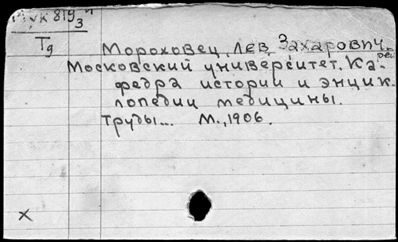 Мук 819₃
Тд
Мороховец, Лев Захарович, ред.
Московский университет. Ка-
федра истории и энцик-
лопедии медицины.
Труды... М., 1906.
x